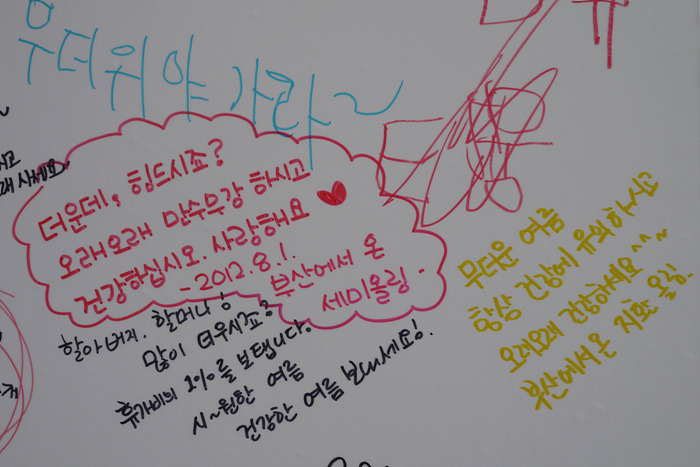 무더위야 가라~
더운데, 힘드시죠?
오래오래 만수무강 하시고
건강하십시오. 사랑해요 ♥
-2012.8.1.
부산에서 온
세미올림.
할아버지. 할머니
많이 더우시죠?
휴가비의 1%를 보탭니다.
시~원한 여름
건강한 여름 보내세요!
무더운 여름
항상 건강에 유의하시고
오래오래 건강하세요^^~
부산에서 온 지환 올림.